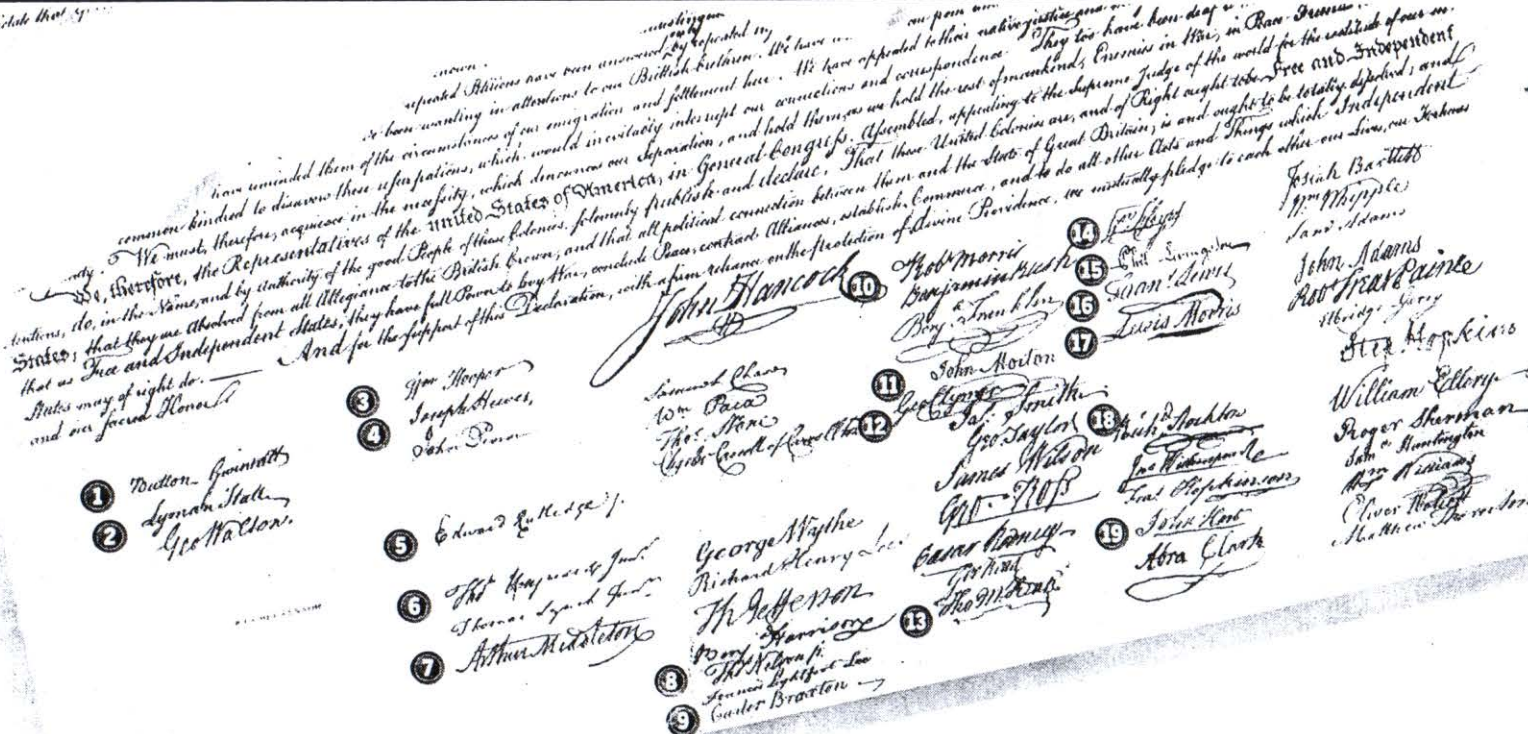 repeated Petitions have been answered by repeated
been wanting in attentions to our Brittish brethren. We have
have reminded them of the circumstances of our emigration and settlement here. We have appealed to their native justice and
common kindred to disavow these usurpations, which would inevitably interrupt our connections and correspondence. They too have been deaf
We must, therefore, acquiesce in the necessity, which denounces our Separation, and hold them, as we hold the rest of mankind, Enemies in War, in Peace Friends
We, therefore, the Representatives of the united States of America, in General Congress, Assembled, appealing to the Supreme Judge of the world for the rectitude of our in
tentions, do, in the Name, and by Authority of the good People of these Colonies, solemnly publish and declare, That these United Colonies are, and of Right ought to be Free and Independent
States; that they are Absolved from all Allegiance to the British Crown, and that all political connection between them and the State of Great Britain, is and ought to be totally dissolved; and
that as Free and Independent States, they have full Power to levy War, conclude Peace, contract Alliances, establish Commerce, and to do all other Acts and Things which Independent
States may of right do. — And for the support of this Declaration, with a firm reliance on the Protection of divine Providence, we mutually pledge to each other our Lives, our Fortunes
and our sacred Honor
John Hancock
1 Button Gwinnett
2 Lyman Hall
Geo Walton.
3 Wm Hooper
4 Joseph Hewes,
John Penn
5 Edward Rutledge
6 Thos Heyward Junr
Thomas Lynch Junr
7 Arthur Middleton
Samuel Chase
Wm Paca
Thos Stone
Charles Carroll of Carrollton
George Wythe
Richard Henry Lee
Th Jefferson
Benj Harrison
8 Thos Nelson jr.
Francis Lightfoot Lee
9 Carter Braxton
10 Robt Morris
Benjamin Rush
Benj Franklin
11 John Morton
12 Geo Clymer
Jas Smith
Geo Taylor
James Wilson
Geo. Ross
Caesar Rodney
Geo Read
13 Tho M:Kean
14
15 Phil. Livingston
16 Frans. Lewis
17 Lewis Morris
18 Richd Stockton
Jno Witherspoon
Fras. Hopkinson
19 John Hart
Abra Clark
Josiah Bartlett
Wm Whipple
Saml Adams
John Adams
Robt Treat Paine
Elbridge Gerry
Step. Hopkins
William Ellery
Roger Sherman
Saml Huntington
Wm Williams
Oliver Wolcott
Matthew Thornton